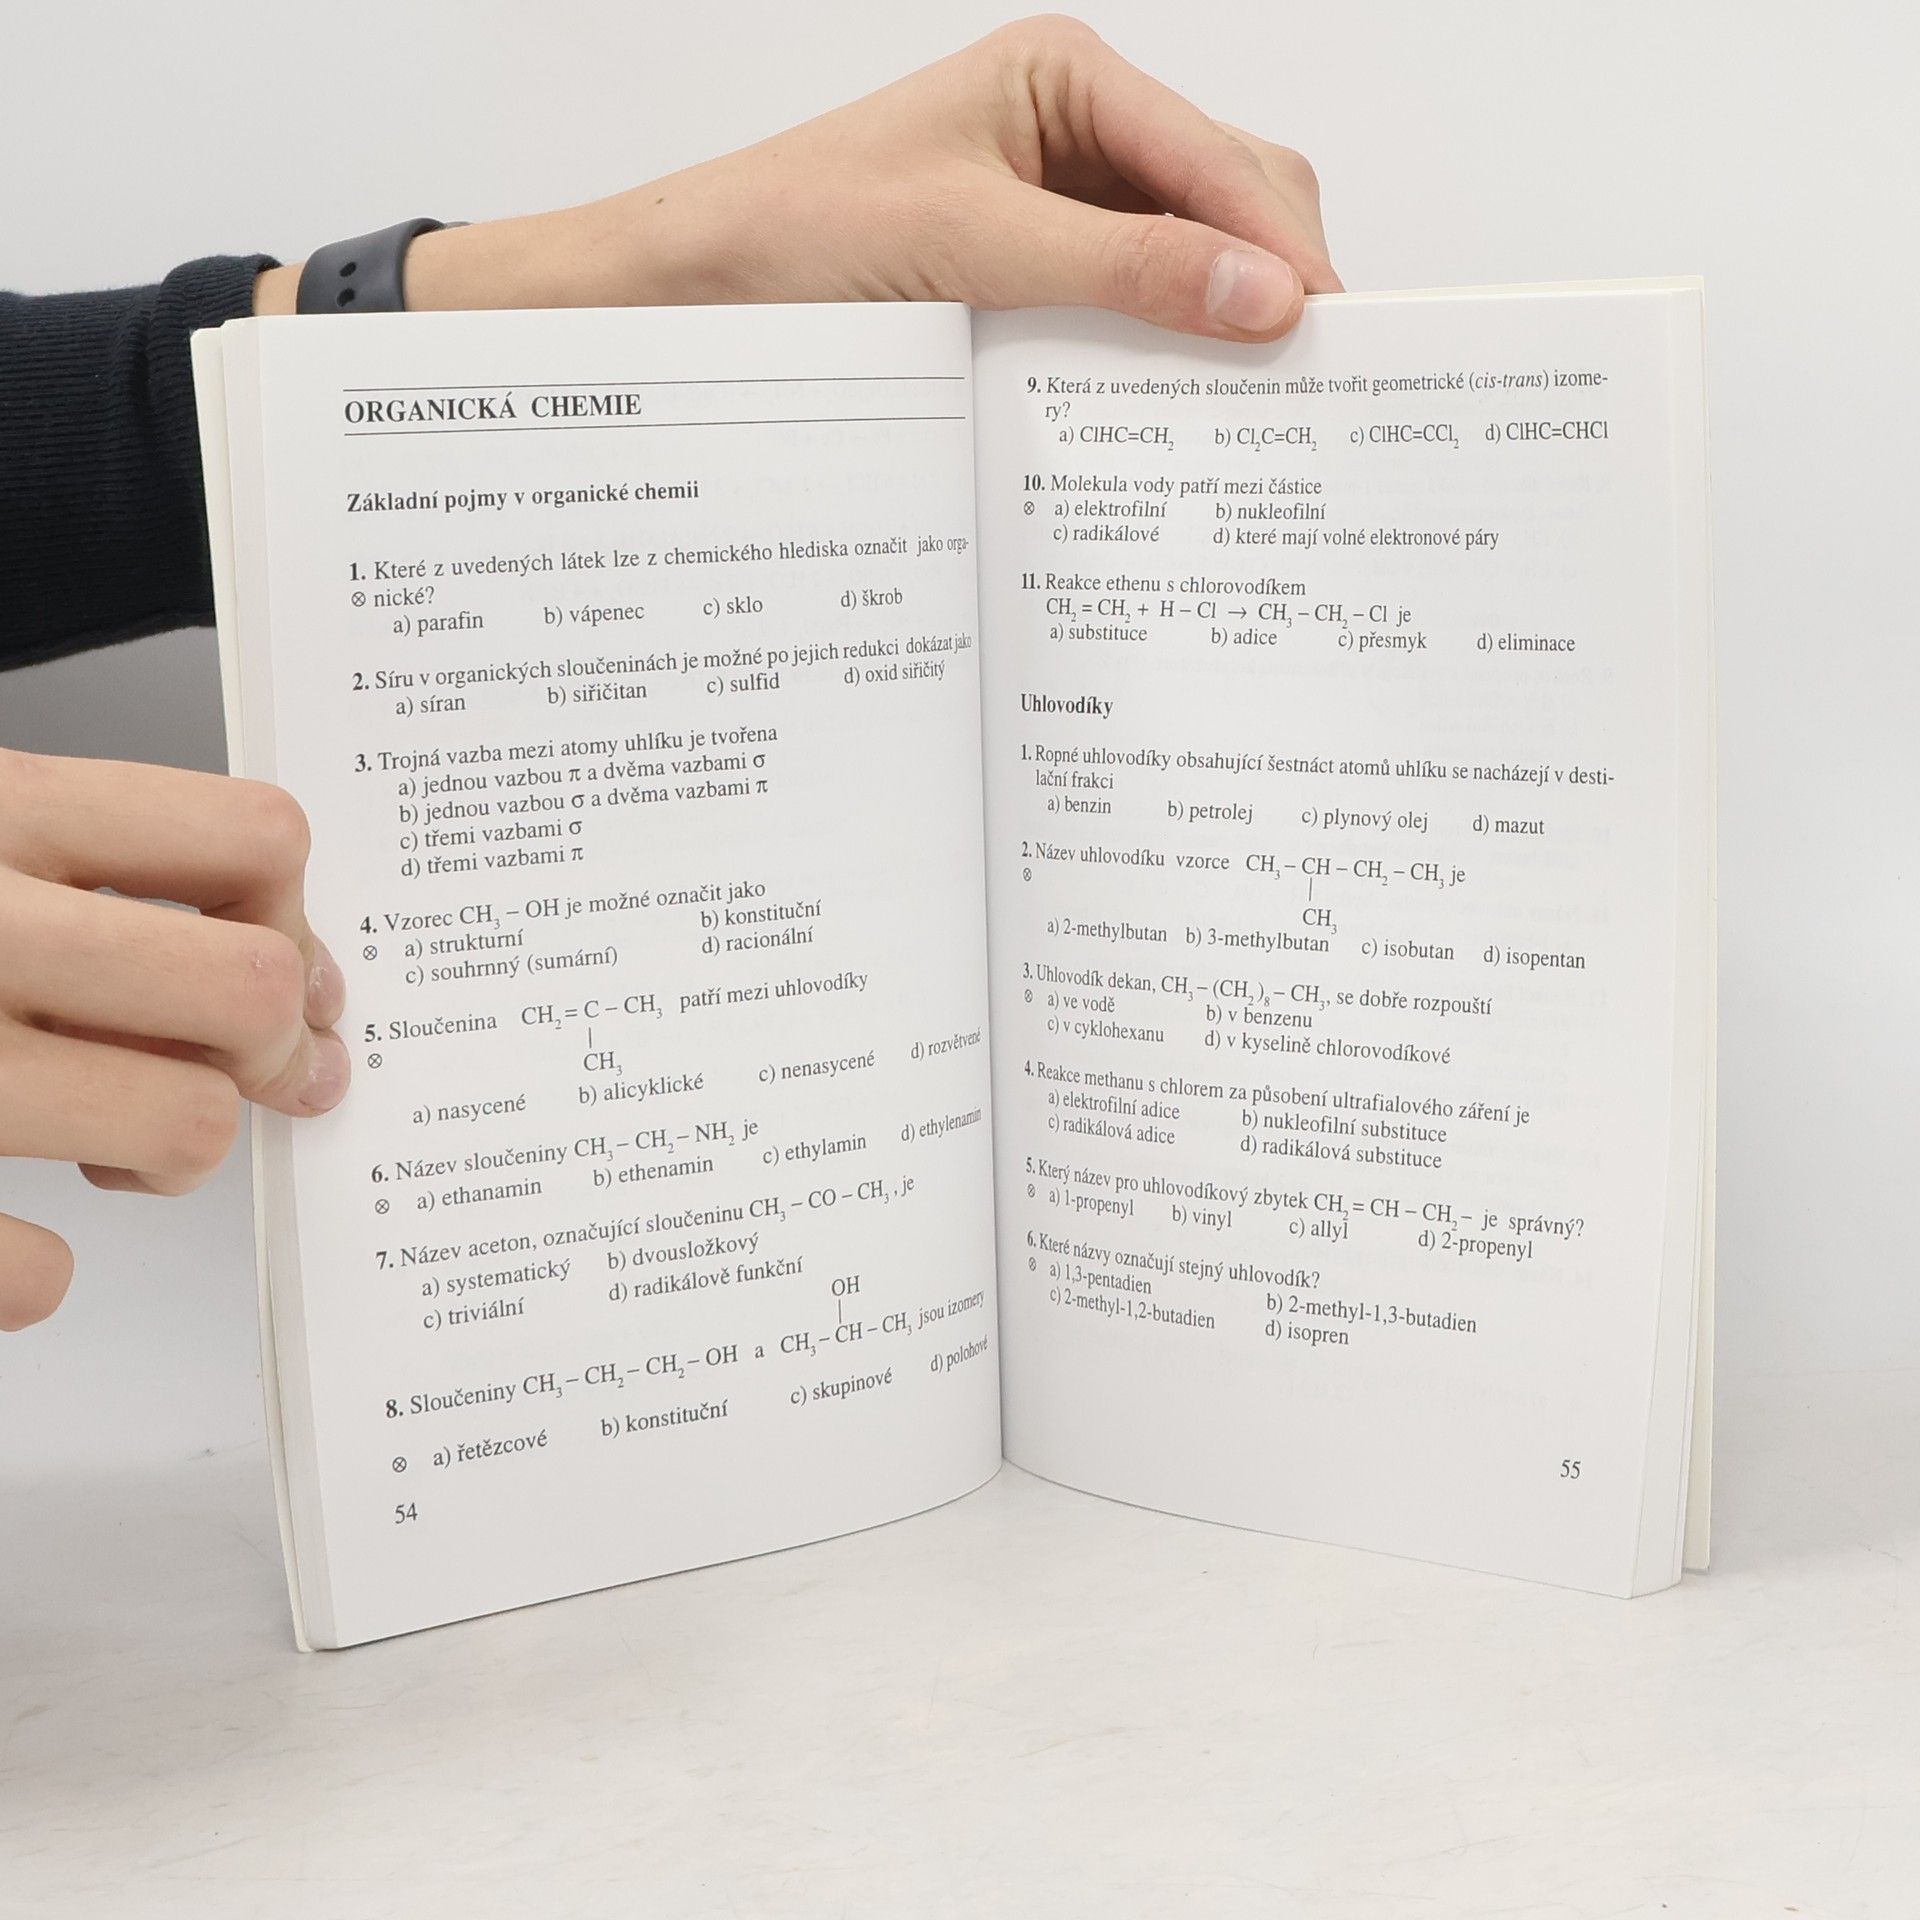 ORGANICKÁ CHEMIE
Základní pojmy v organické chemii
1. Které z uvedených látek lze z chemického hlediska označit jako orga-
⊗ nické?
a) parafin b) vápenec c) sklo d) škrob
2. Síru v organických sloučeninách je možné po jejich redukci dokázat jako
a) síran b) siřičitan c) sulfid d) oxid siřičitý
3. Trojná vazba mezi atomy uhlíku je tvořena
a) jednou vazbou π a dvěma vazbami σ
b) jednou vazbou σ a dvěma vazbami π
c) třemi vazbami σ
d) třemi vazbami π
4. Vzorec CH₃ – OH je možné označit jako
⊗ a) strukturní b) konstituční
c) souhrnný (sumární) d) racionální
5. Sloučenina CH₂ = C – CH₃ patří mezi uhlovodíky
⊗ |
CH₃
a) nasycené b) alicyklické c) nenasycené d) rozvětvené
6. Název sloučeniny CH₃ – CH₂ – NH₂ je
⊗ a) ethanamin b) ethenamin c) ethylamin d) ethylenamin
7. Název aceton, označující sloučeninu CH₃ – CO – CH₃ , je
a) systematický b) dvousložkový
c) triviální d) radikálově funkční
OH
|
8. Sloučeniny CH₃ – CH₂ – CH₂ – OH a CH₃ – CH – CH₃ jsou izomery
⊗ a) řetězcové b) konstituční c) skupinové d) polohové
54
9. Která z uvedených sloučenin může tvořit geometrické (cis-trans) izome-
ry?
a) ClHC=CH₂ b) Cl₂C=CH₂ c) ClHC=CCl₂ d) ClHC=CHCl
10. Molekula vody patří mezi částice
⊗ a) elektrofilní b) nukleofilní
c) radikálové d) které mají volné elektronové páry
11. Reakce ethenu s chlorovodíkem
CH₂ = CH₂ + H – Cl → CH₃ – CH₂ – Cl je
a) substituce b) adice c) přesmyk d) eliminace
Uhlovodíky
1. Ropné uhlovodíky obsahující šestnáct atomů uhlíku se nacházejí v desti-
lační frakci
a) benzin b) petrolej c) plynový olej d) mazut
2. Název uhlovodíku vzorce CH₃ – CH – CH₂ – CH₃ je
⊗ |
CH₃
a) 2-methylbutan b) 3-methylbutan c) isobutan d) isopentan
3. Uhlovodík dekan, CH₃ – (CH₂)₈ – CH₃, se dobře rozpouští
⊗ a) ve vodě b) v benzenu
c) v cyklohexanu d) v kyselině chlorovodíkové
4. Reakce methanu s chlorem za působení ultrafialového záření je
a) elektrofilní adice b) nukleofilní substituce
c) radikálová adice d) radikálová substituce
5. Který název pro uhlovodíkový zbytek CH₂ = CH – CH₂ – je správný?
⊗ a) 1-propenyl b) vinyl c) allyl d) 2-propenyl
6. Které názvy označují stejný uhlovodík?
⊗ a) 1,3-pentadien b) 2-methyl-1,3-butadien
c) 2-methyl-1,2-butadien d) isopren
55